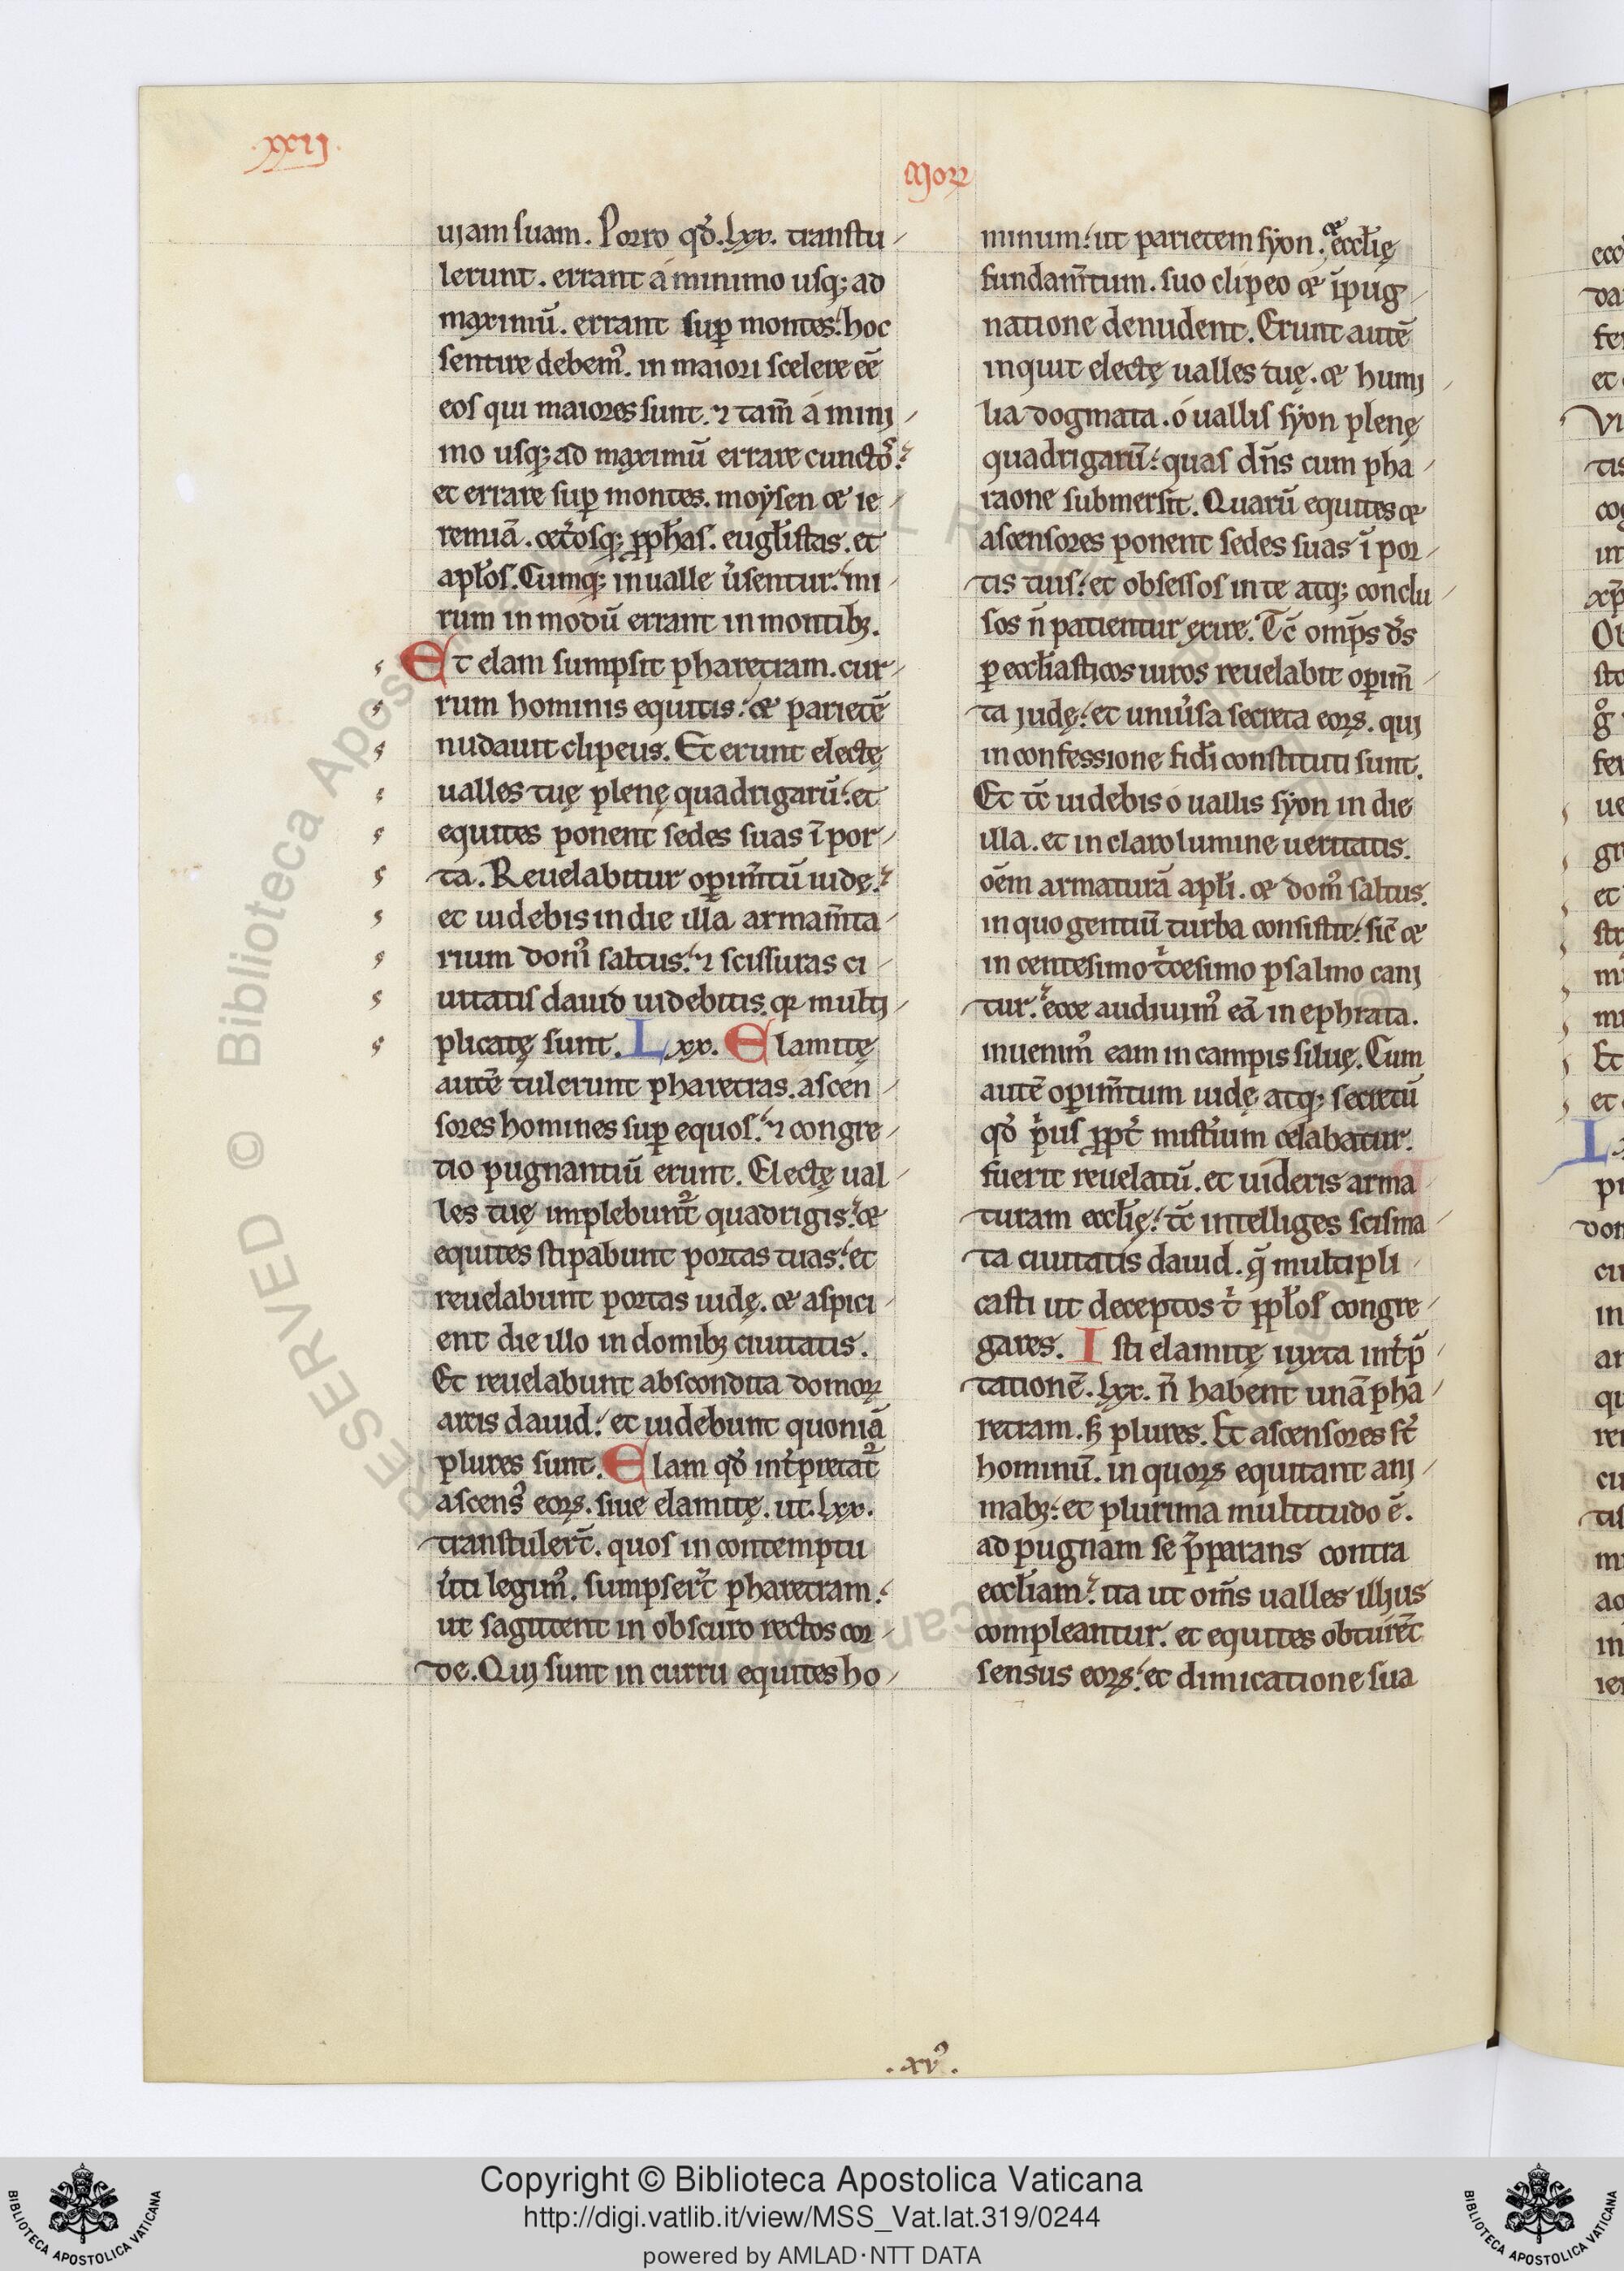 .xxij.
Morꝝ
uiam suam. Porro qđ .lxx. tranſtu
lerunt. errant á minimo uſq; ad
maximū. errant ſuꝑ montes: hoc
ſentire debem᾽. in maiori ſcelere eē
eoſ qui maiores ſunt. ⁊ tam̄ á mini
mo uſq; ad maximū errare cuncto᾽.
et errare ſuꝑ montes. moyſen ⁊ ie
remiā. cet̓oſq; ꝓph̄aſ. eugl̄iſtas. et
apl̄oſ. Cumq; in ualle u̓ſentur: mi
rum in modū errant in montibꝫ.
Et elam ſumpſit pharetram. cur
rum hominis equitis: ⁊ parietē
nudauit clipeus. Et erunt electę
ualles tuę plenę quadrigarū: et
equites ponent ſedes ſuas ī por
ta. Reuelabitur oꝑim̄tū iudę.
et uidebis in die illa armam̄ta
rium dom᾽ ſaltus: ⁊ ſciſſuras ci
uitatiſ dauid uidebitis. qꝛ multi
plicatę ſunt. Lxx. Elamitę
autē tulerunt pharetras. aſcen
ſores homines ſuꝑ equoſ: ⁊ congre
tio pugnantiū erunt. Electę ual
les tuę implebunt᷑ quadrigis: ⁊
equites ſtipabunt portas tuas: et
reuelabunt portas iudę. ⁊ aſpici
ent die illo in domibꝫ ciuitatis.
Et reuelabunt abſcondita domoꝝ
arcis dauid: et uidebunt quoniā
plures ſunt. Elam qđ int̓pretat᷑
aſcenſ᾽ eoꝝ. ſiue elamitę. ut .lxx.
tranſtuler̄t. quoſ in contemptu
u̓ti legim᾽. ſumpſer̄t pharetram:
ut ſagittent in obſcuro rectos cor
de. Qui ſunt in curru equites ho
minum: ut parietem ſyon. ⁊ eccl̄ię
fundam̄tum. ſuo clipeo ⁊ īpug
natione denudent. Erunt autē
inquit electę ualles tuę. ⁊ humi
lia dogmata. ó ualliſ ſyon plenę
quadrigarū: quaſ dn̄s cum pha
raone ſubmerſit. Quarū equites ⁊
aſcenſores ponent ſedes ſuas ī por
tis tuiſ: et obſeſſoſ in te atq; conclu
ſos n̄ patientur exire. Tc̄ omp̄s d̄s
ꝑ eccl̄iaſticos uiros reuelabit oꝑim̄
ta iudę: et uniu̓ſa ſecreta eoꝝ. qui
in confessione fid̄i conſtituti ſunt.
Et tc̄ uidebis ó uallis ſyon in die
illa. et in claro lumine ueritatis.
oēm armaturā apl̄i. ⁊ dom᾽ ſaltus.
in quo gentiū turba conſiſtit: ſic̄ ⁊
in centeſimo t̓ceſimo pſalmo cani
tur: ecce audiuim᾽ eā in ephrata.
inuenim᾽ eam in campis ſiluę. Cum
autē oꝑim̄tum iudę atq; ſecretū
qđ p̓uſ ꝓpt̓ miſt̓ium celabatur.
fuerit reuelatū. et uideris arma
turam eccl̄ię: tc̄ intelliges ſciſma
ta ciuitatis dauid. q̄ multipli
caſti ut deceptos t̓ pp̄l̄oſ congre
gares. Iſti elamitę iuxta int̓p̄
tationē .lxx. n̄ habent unā pha
retram. ſꝫ plures. Et aſcenſores ſt̄
hominū. in quoꝝ equitant ani
mabꝫ: et plurima multitudo ē.
ad pugnam ſe p̄parans contra
eccl̄iam: ita ut om̄s ualles illius
compleantur. et equites obturēt
ſensus eoꝝ: et dimicatione ſua
.xv᾽.
Copyright © Biblioteca Apostolica Vaticana
http://digi.vatlib.it/view/MSS_Vat.lat.319/0244
powered by AMLAD·NTT DATA